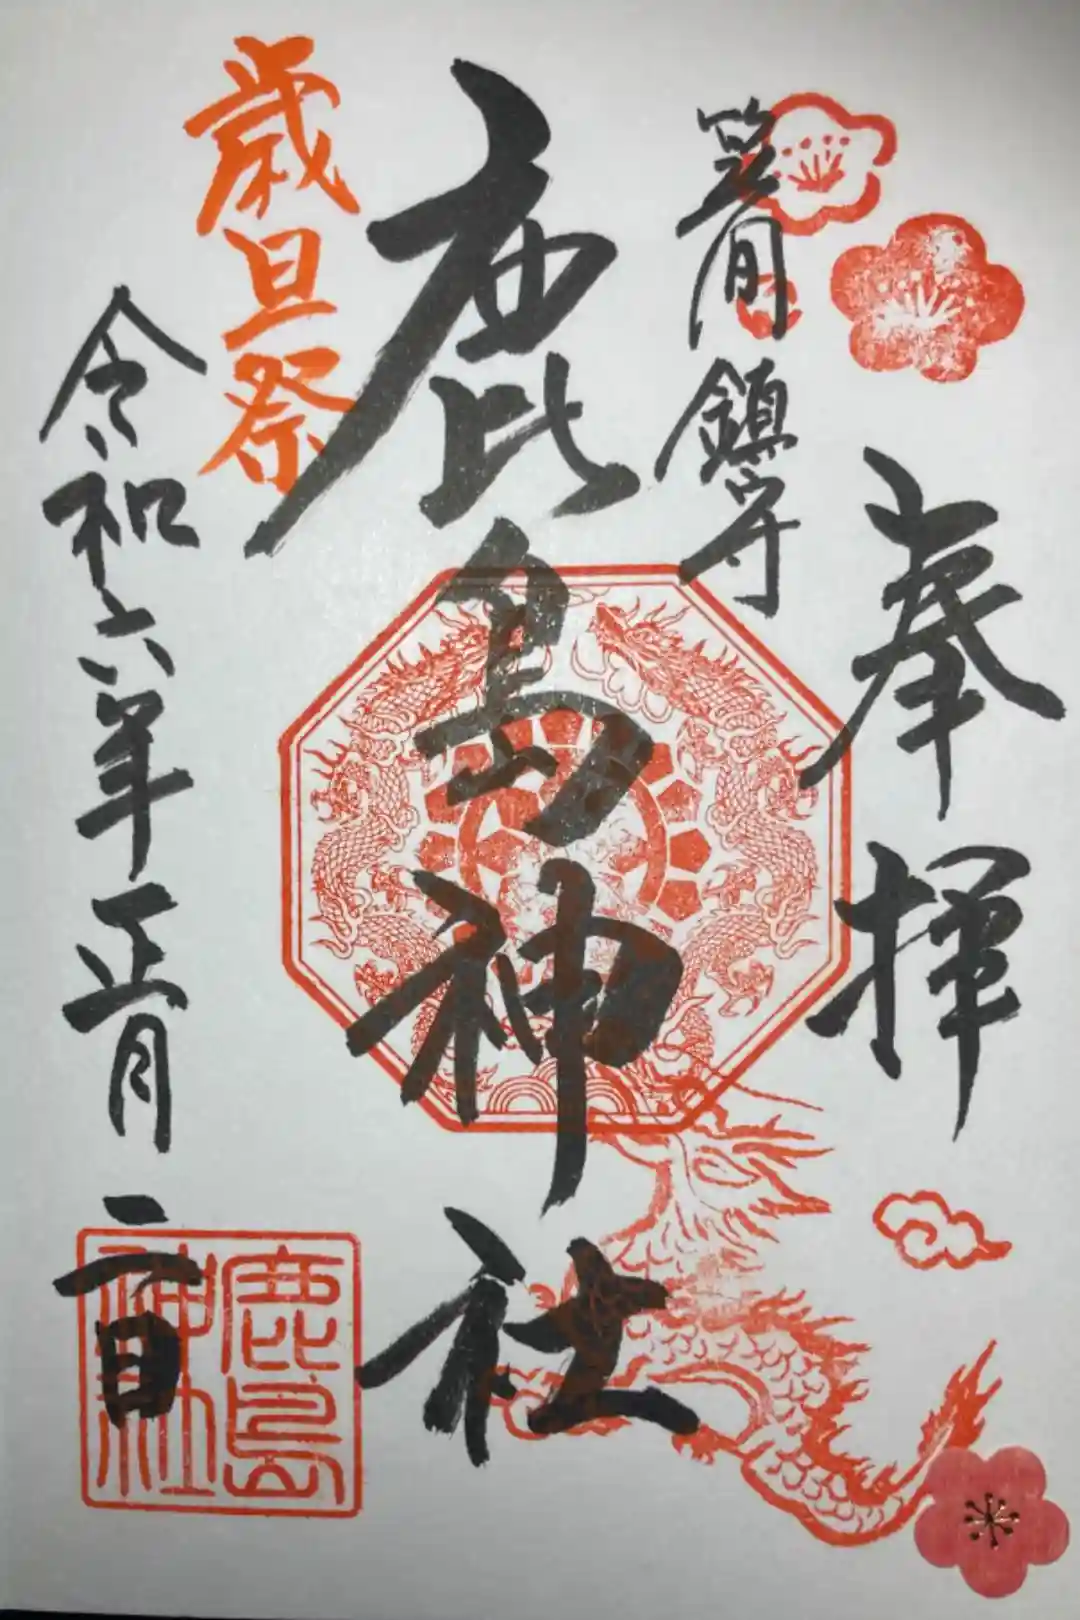 奉拝
笠間鎮守
鹿島神社
歳旦祭
令和六年正月二日
鹿島
神社